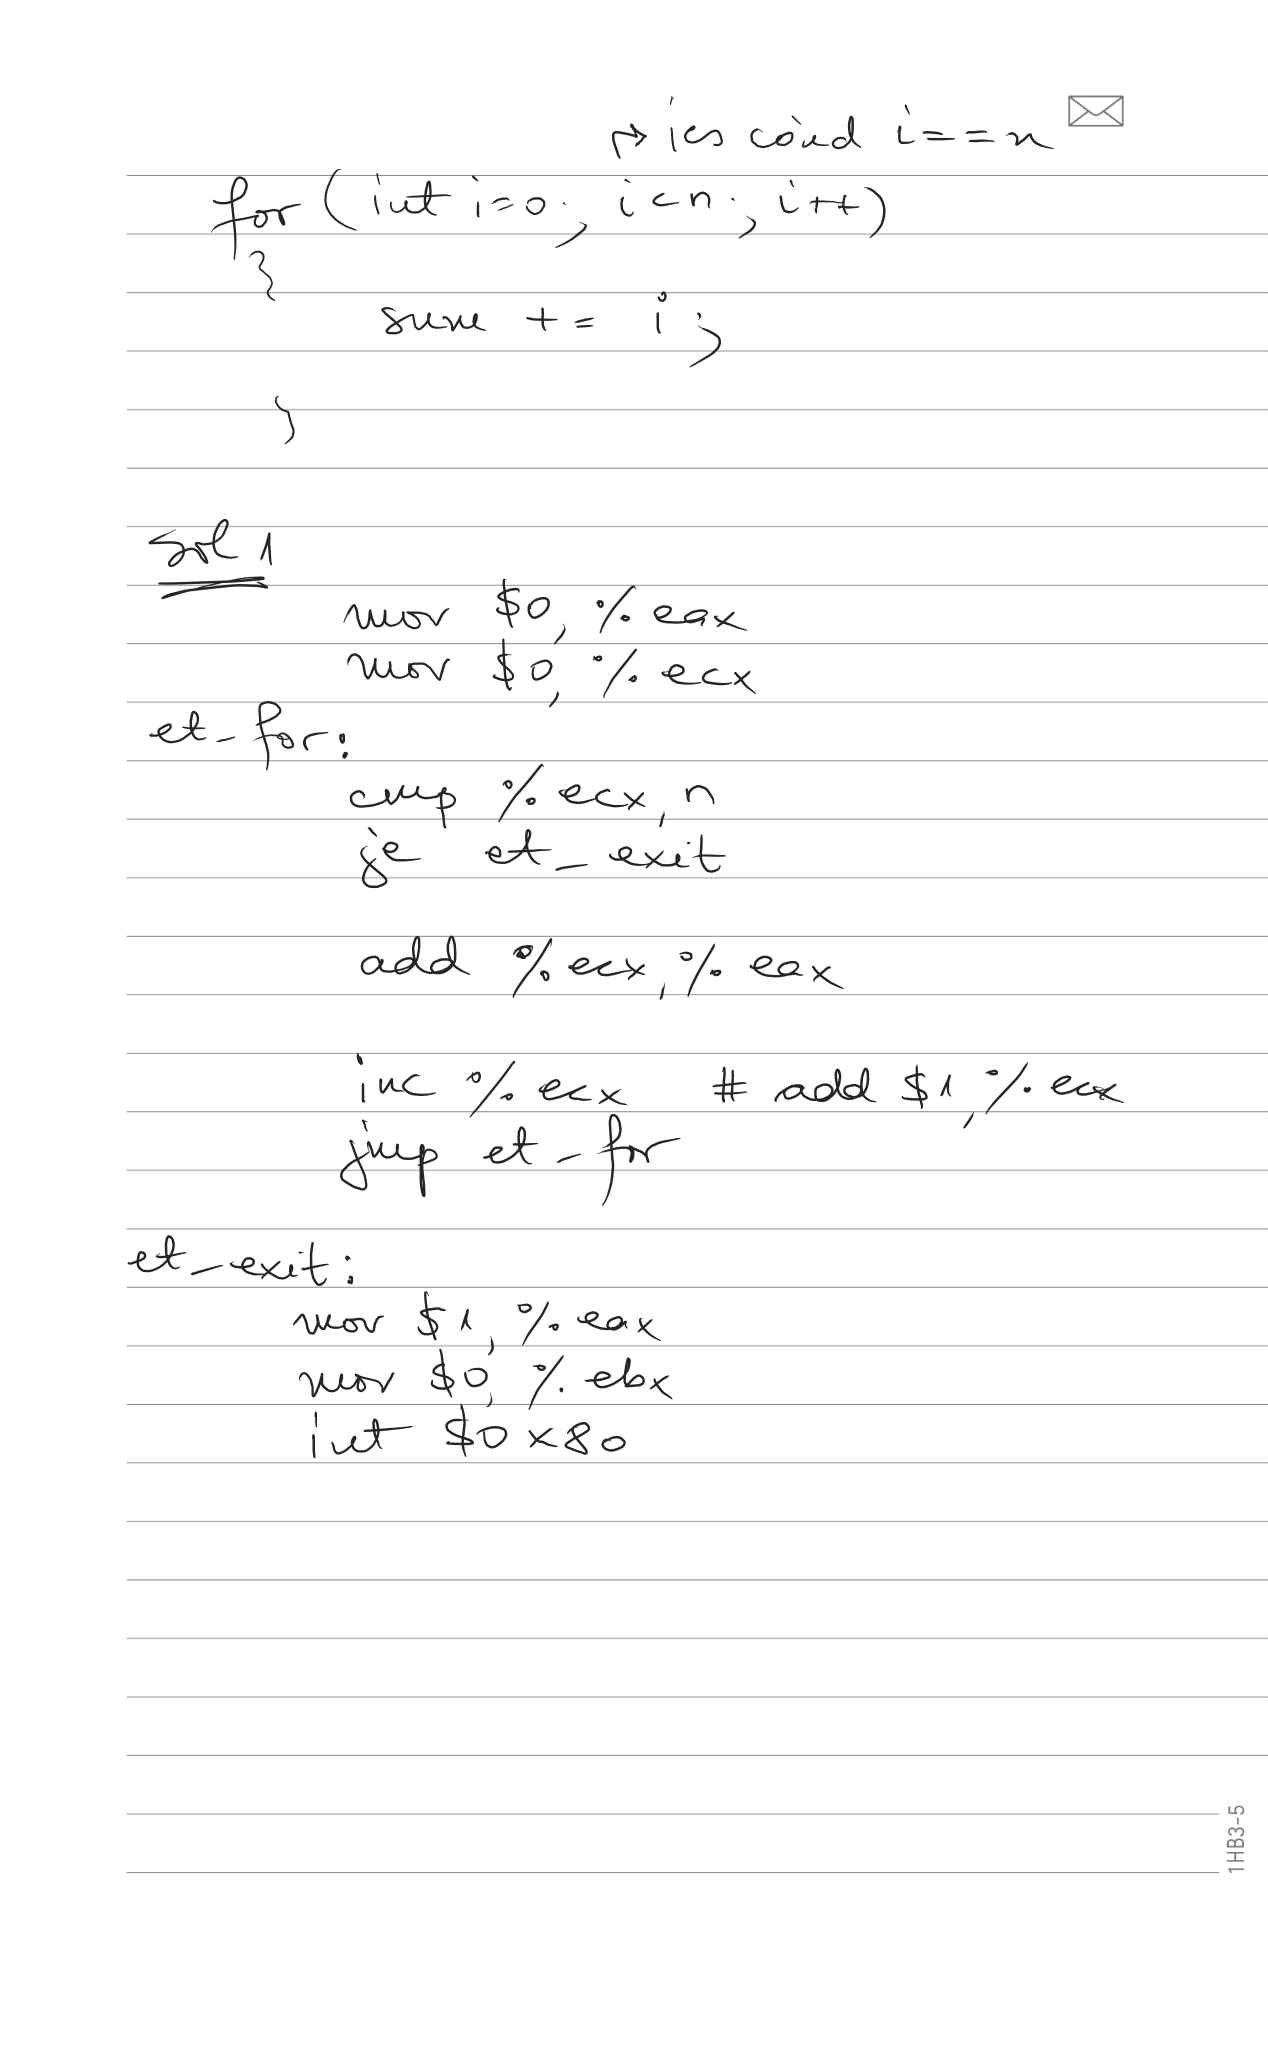 → ies când i==n
for(int i=0; i<n; i++)
{
sum += i;
}
sol 1
mov $0, %eax
mov $0, %ecx
et_for:
cmp %ecx, n
je et_exit
add %ecx, %eax
inc %ecx # add $1, %ecx
jmp et_for
et_exit:
mov $1, %eax
mov $0, %ebx
int $0x80
1HB3-5